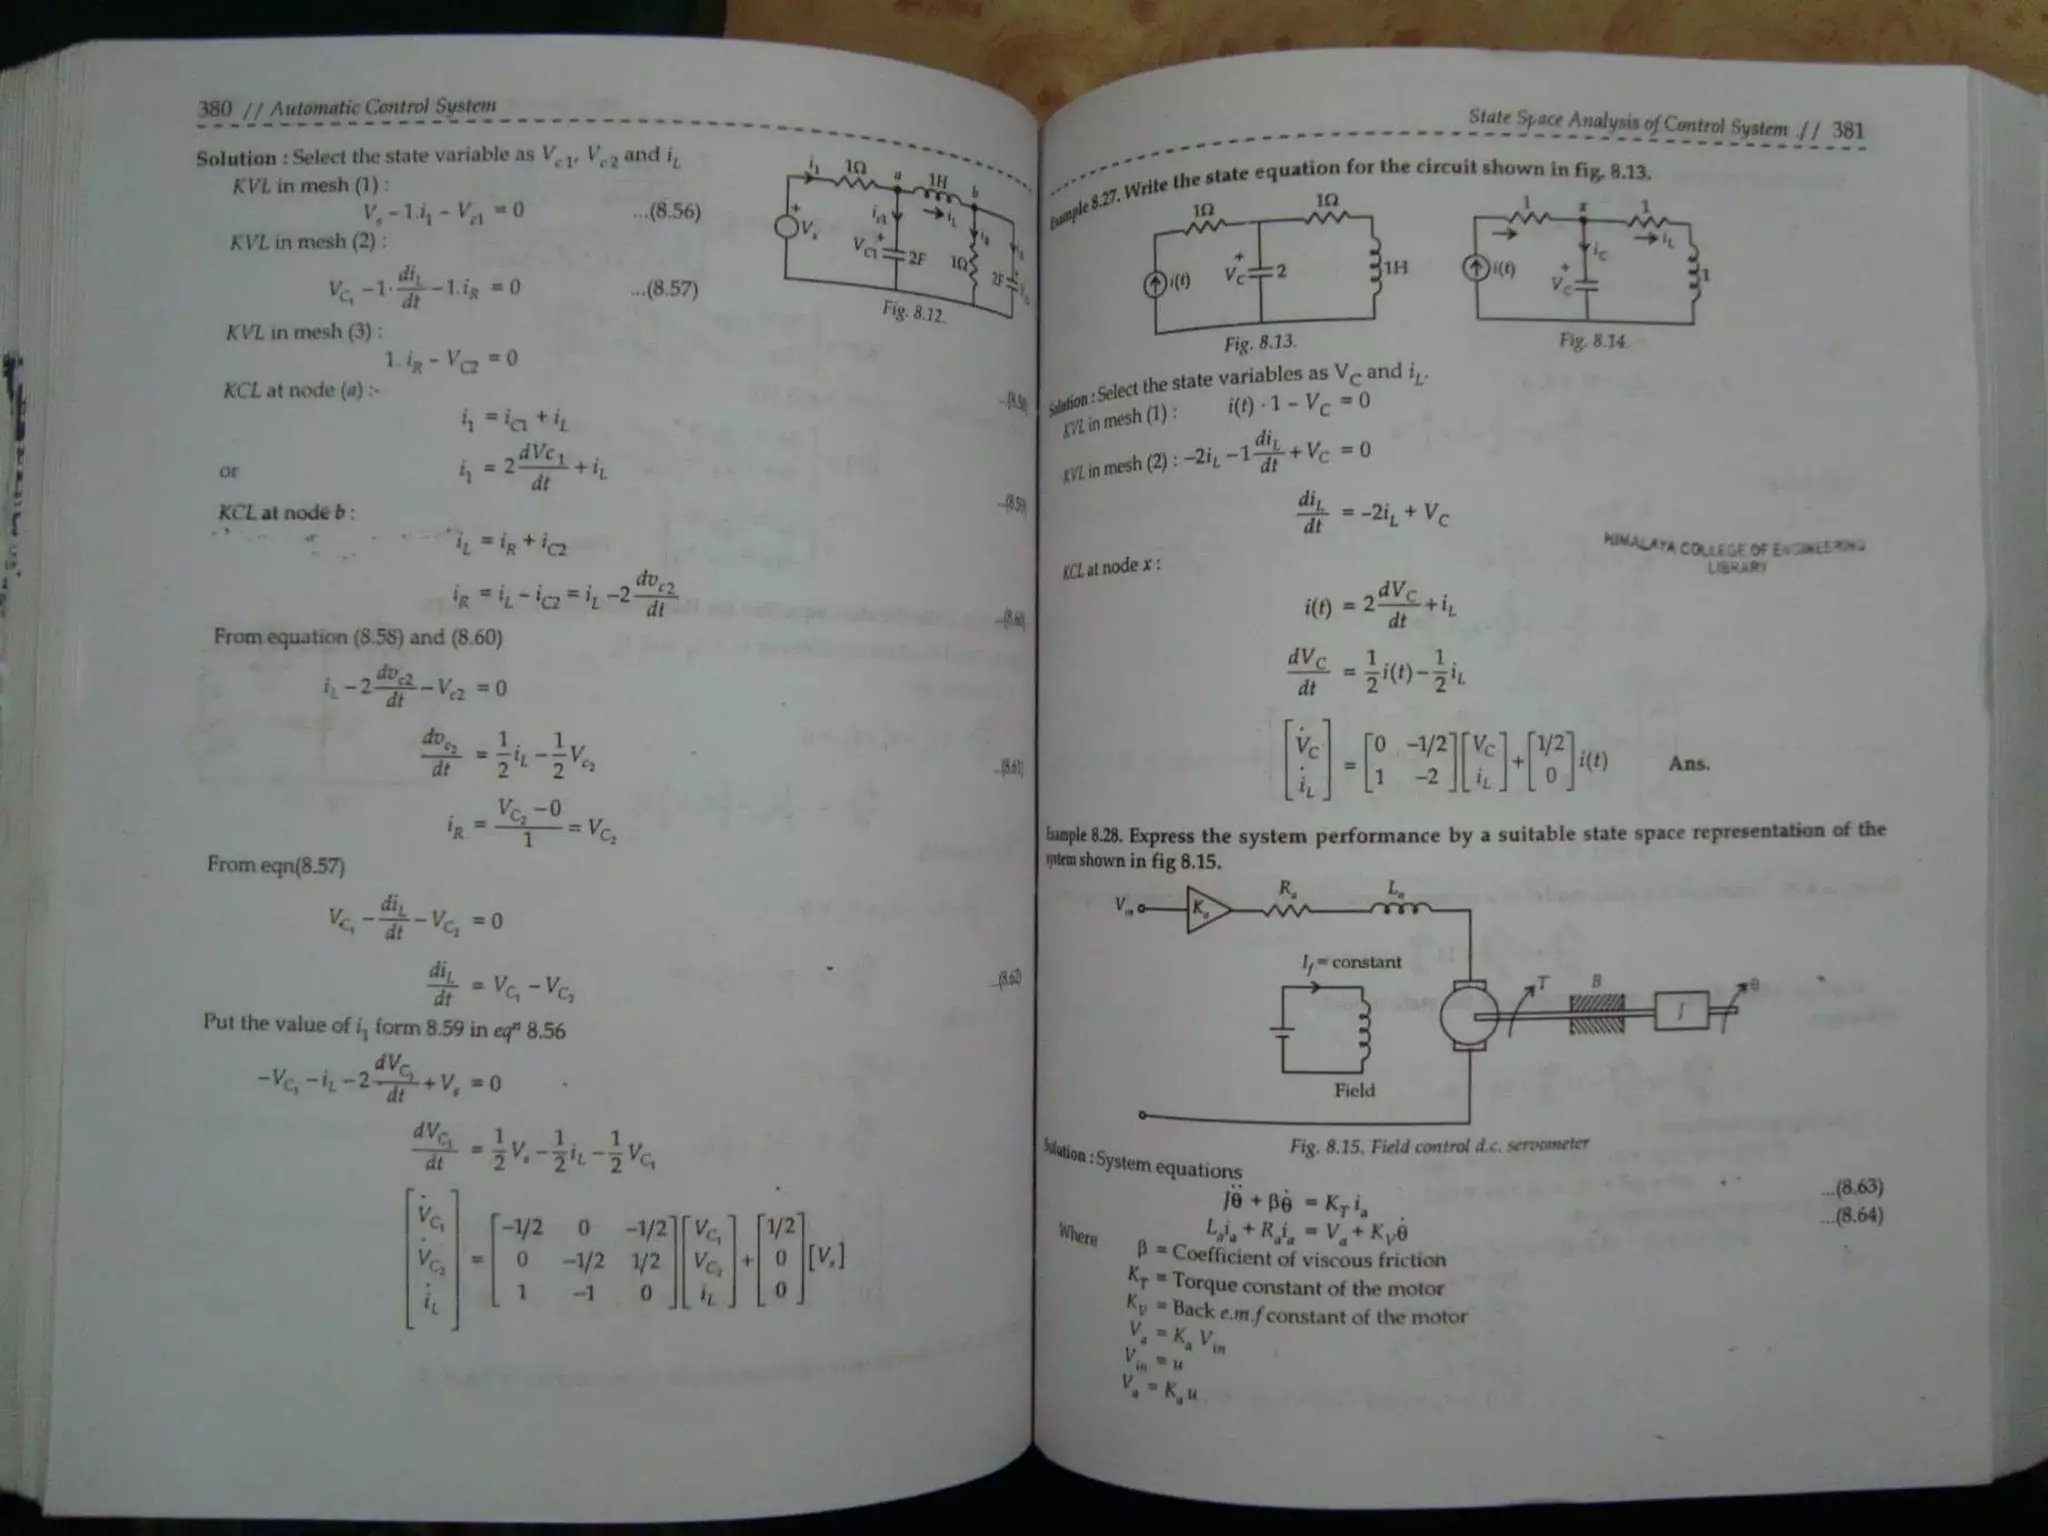 380 // Automatic Control System
Solution : Select the state variable as V_c1, V_c2 and i_L
KVL in mesh (1) :
V_s - 1.i_1 - V_c1 = 0 ...(8.56)
KVL in mesh (2) :
V_C1 - 1. di_L/dt - 1.i_R = 0 ...(8.57)
KVL in mesh (3) :
1. i_R - V_C2 = 0 ...(8.58)
KCL at node (a) :-
i_1 = i_C1 + i_L
or i_1 = 2 dVc_1/dt + i_L ...(8.59)
KCL at node b :
i_L = i_R + i_C2
i_R = i_L - i_C2 = i_L - 2 dv_c2/dt ...(8.60)
From equation (8.58) and (8.60)
i_L - 2 dv_c2/dt - V_c2 = 0
dv_c2/dt = 1/2 i_L - 1/2 V_c2 ...(8.61)
i_R = V_C2 - 0 / 1 = V_C2
From eqn(8.57)
V_C1 - di_L/dt - V_C2 = 0
di_L/dt = V_C1 - V_C2 ...(8.62)
Put the value of i_1 form 8.59 in eq^n 8.56
-V_C1 - i_L - 2 dV_C1/dt + V_s = 0
dV_C1/dt = 1/2 V_s - 1/2 i_L - 1/2 V_C1
[V̇_C1 V̇_C2 i̇_L] = [-1/2 0 -1/2
0 -1/2 1/2
1 -1 0] [V_C1 V_C2 i_L] + [1/2 0 0] [V_s]
i_1 1Ω a 1H b
i_c1 i_L i_R
+ V_s V_C1 + 2F 1Ω 2F +
Fig. 8.12.
State Space Analysis of Control System // 381
Example 8.27. Write the state equation for the circuit shown in fig. 8.13.
1Ω 1Ω
i(t) V_C + 2 1H
Fig. 8.13.
1 x 1
i_C i_L
i(t) V_C + 1
Fig. 8.14
Solution : Select the state variables as V_C and i_L.
KVL in mesh (1) : i(t) . 1 - V_C = 0
KVL in mesh (2) : -2i_L - 1 di_L/dt + V_C = 0
di_L/dt = -2i_L + V_C
HIMALAYA COLLEGE OF ENGINEERING
LIBRARY
KCL at node x :
i(t) = 2 dV_C/dt + i_L
dV_C/dt = 1/2 i(t) - 1/2 i_L
[V̇_C i̇_L] = [0 -1/2
1 -2] [V_C i_L] + [1/2 0] i(t) Ans.
Example 8.28. Express the system performance by a suitable state space representation of the
system shown in fig 8.15.
V_in K_a R_a L_a
I_f = constant
T B J θ
Field
Fig. 8.15. Field control d.c. servometer
Solution : System equations
Jθ̈ + βθ̇ = K_T i_a ...(8.63)
L_a i̇_a + R_a i_a = V_a + K_v θ̇ ...(8.64)
Where β = Coefficient of viscous friction
K_T = Torque constant of the motor
K_v = Back e.m.f constant of the motor
V_a = K_a V_in
V_in = u
V_a = K_a u